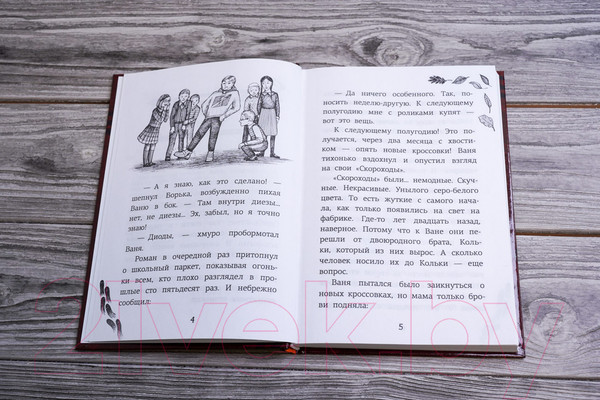 — А я знаю, как это сделано! —
шепнул Борька, возбужденно пихая
Ваню в бок. — Там внутри диезы...
нет, не диезы... Эх, забыл, но я точно
знаю!
— Диоды, — хмуро пробормотал
Ваня.
Роман в очередной раз притопнул
о школьный паркет, показывая огонь-
ки всем, кто плохо разглядел в про-
шлые сто пятьдесят раз. И небрежно
сообщил:
4
— Да ничего особенного. Так, по-
носить неделю-другую. К следующему
полугодию мне с роликами купят —
вот это вещь.
К следующему полугодию! Это по-
лучается, через два месяца с хвости-
ком — опять новые кроссовки! Ваня
тихонько вздохнул и опустил взгляд
на свои «Скороходы».
«Скороходы» были... немодные. Скуч-
ные. Некрасивые. Унылого серо-белого
цвета. То есть жуткие с самого нача-
ла, как только появились на свет на
фабрике. Где-то лет двадцать назад,
наверное. Потому что к Ване они пе-
решли от двоюродного брата, Коль-
ки, который из них вырос. А сколько
человек носило их до Кольки — еще
вопрос.
Ваня пытался было заикнуться о
новых кроссовках, но мама только бро-
ви подняла:
5
21vek.by